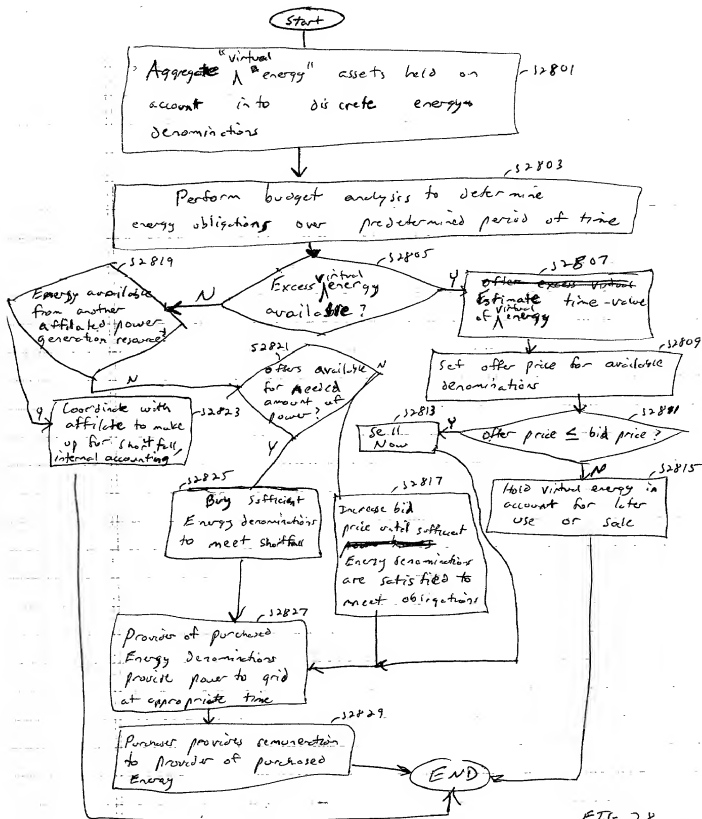 Start
Aggregate "virtual "energy" assets held on
account in to discrete energy
denominctions
S2801
S2803
Perform budget analysis to determine
energy obligations over predetermined period of time
S2805
Excess virtual energy
available?
N
Y
S2819
Energy available
from another
affiliated power
generation resource?
Y
N
S2807
offer excess virtual
Estimate time-value
of virtual energy
S2809
Set offer price for available
denominations
S2811
offer price ≤ bid price?
Y
N
S2813
Sell
Now
S2815
Hold virtual energy in
account for later
use or sale
S2821
offers available
for needed
amount of
power?
N
Y
S2823
Coordinate with
affiliate to make
up for shortfall,
internal accounting
S2825
Buy sufficient
Energy denominations
to meet shortfall
S2817
Increase bid
price until sufficient
Energy denominations
are satisfied to
meet obligations
S2827
Provider of purchased
Energy denominations
provide power to grid
at appropriate time
S2829
Purchaser provides remuneration
to provider of purchased
Energy
END
FIG 28